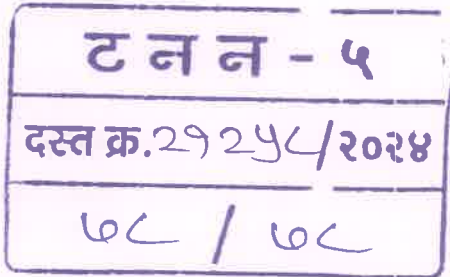 ट न न - ५
दस्त क्र.२१२५८/२०२४
७८ / ७८